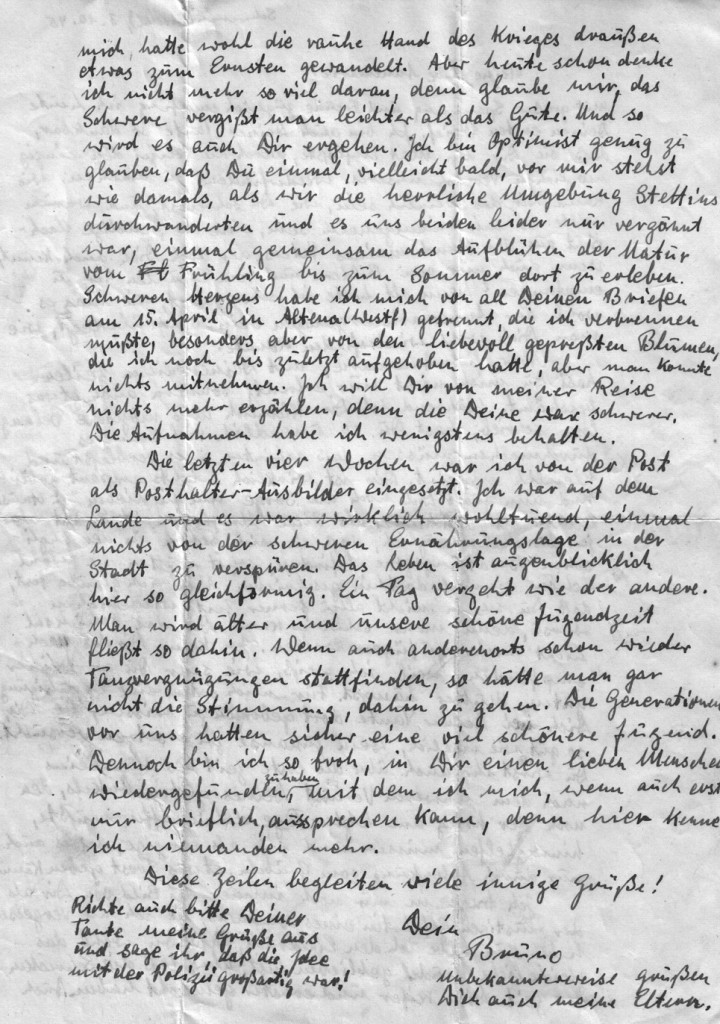 mich, hatte wohl die rauhe Hand des Krieges draußen
etwas zum Ernsten gewandelt. Aber heute schon denke
ich nicht mehr so viel daran, denn glaube mir, das
Schwere vergißt man leichter als das Gute. Und so
wird es auch Dir ergehen. Ich bin Optimist genug zu
glauben, daß Du einmal, vielleicht bald, vor mir stehst
wie damals, als wir die herrliche Umgebung Stettins
durchwanderten und es uns beiden leider nur vergönnt
war, einmal gemeinsam das Aufblühen der Natur
vom Frühling bis zum Sommer dort zu erleben.
Schweren Herzens habe ich mich von all Deinen Briefen
am 15. April in Altena (Westf) getrennt, die ich verbrennen
mußte, besonders aber von den liebevoll gepreßten Blumen,
die ich noch bis zuletzt aufgehoben hatte, aber man konnte
nichts mitnehmen. Ich will Dir von meiner Reise
nichts mehr erzählen, denn die Deine war schwerer.
Die Aufnahmen habe ich wenigstens behalten.
Die letzten vier Wochen war ich von der Post
als Posthalter-Ausbilder eingesetzt. Ich war auf dem
Lande und es war wirklich wohltuend, einmal
nichts von der schweren Ernährungslage in der
Stadt zu verspüren. Das Leben ist augenblicklich
hier so gleichförmig. Ein Tag vergeht wie der andere.
Man wird älter und unsere schöne Jugendzeit
fließt so dahin. Wenn auch anderenorts schon wieder
Tanzvergnügungen stattfinden, so hätte man gar
nicht die Stimmung, dahin zu gehen. Die Generationen
vor uns hatten sicher eine viel schönere Jugend.
Dennoch bin ich so froh, in Dir einen lieben Menschen
wiedergefunden zu haben, mit dem ich mich, wenn auch erst
nur brieflich, aussprechen kann, denn hier kenne
ich niemanden mehr.
Diese Zeilen begleiten viele innige Grüße!
Dein
Bruno
unbekannterweise grüßen
Dich auch meine Eltern.
Richte auch bitte Deiner
Tante meine Grüße aus
und sage ihr, daß die Idee
mit der Polizei großartig war!